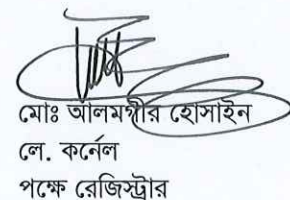 মোঃ আলমগীর হোসাইন
লে. কর্নেল
পক্ষে রেজিস্ট্রার